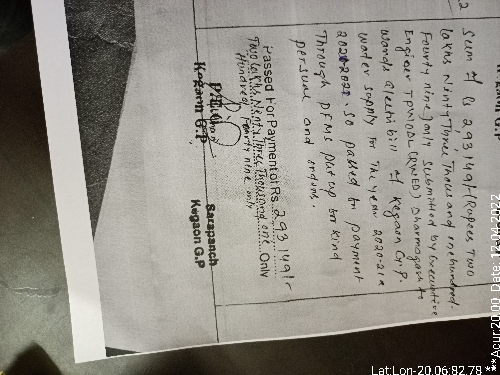 Sum of Rs 293149/- (Rupees Two
lakhs Ninty Three Thousand one hundred
Fourty nine) only submitted by Executive
Engineer TPWODL (RWED) Dharmagarh to
wards Electri bill of Kegaon G.P.
water supply for the year 2020-21 &
2021-2022. So passed for payment
Through PFMS put up for kind
perusal and orders.
Passed For Payment of Rs. 293149/-
Two Lakhs Ninty Three Thousand one Only
Hundred Fourty nine only
Kegaon G.P
Sarapanch
Kegaon G.P
Lat:Lon-20.06:82.78